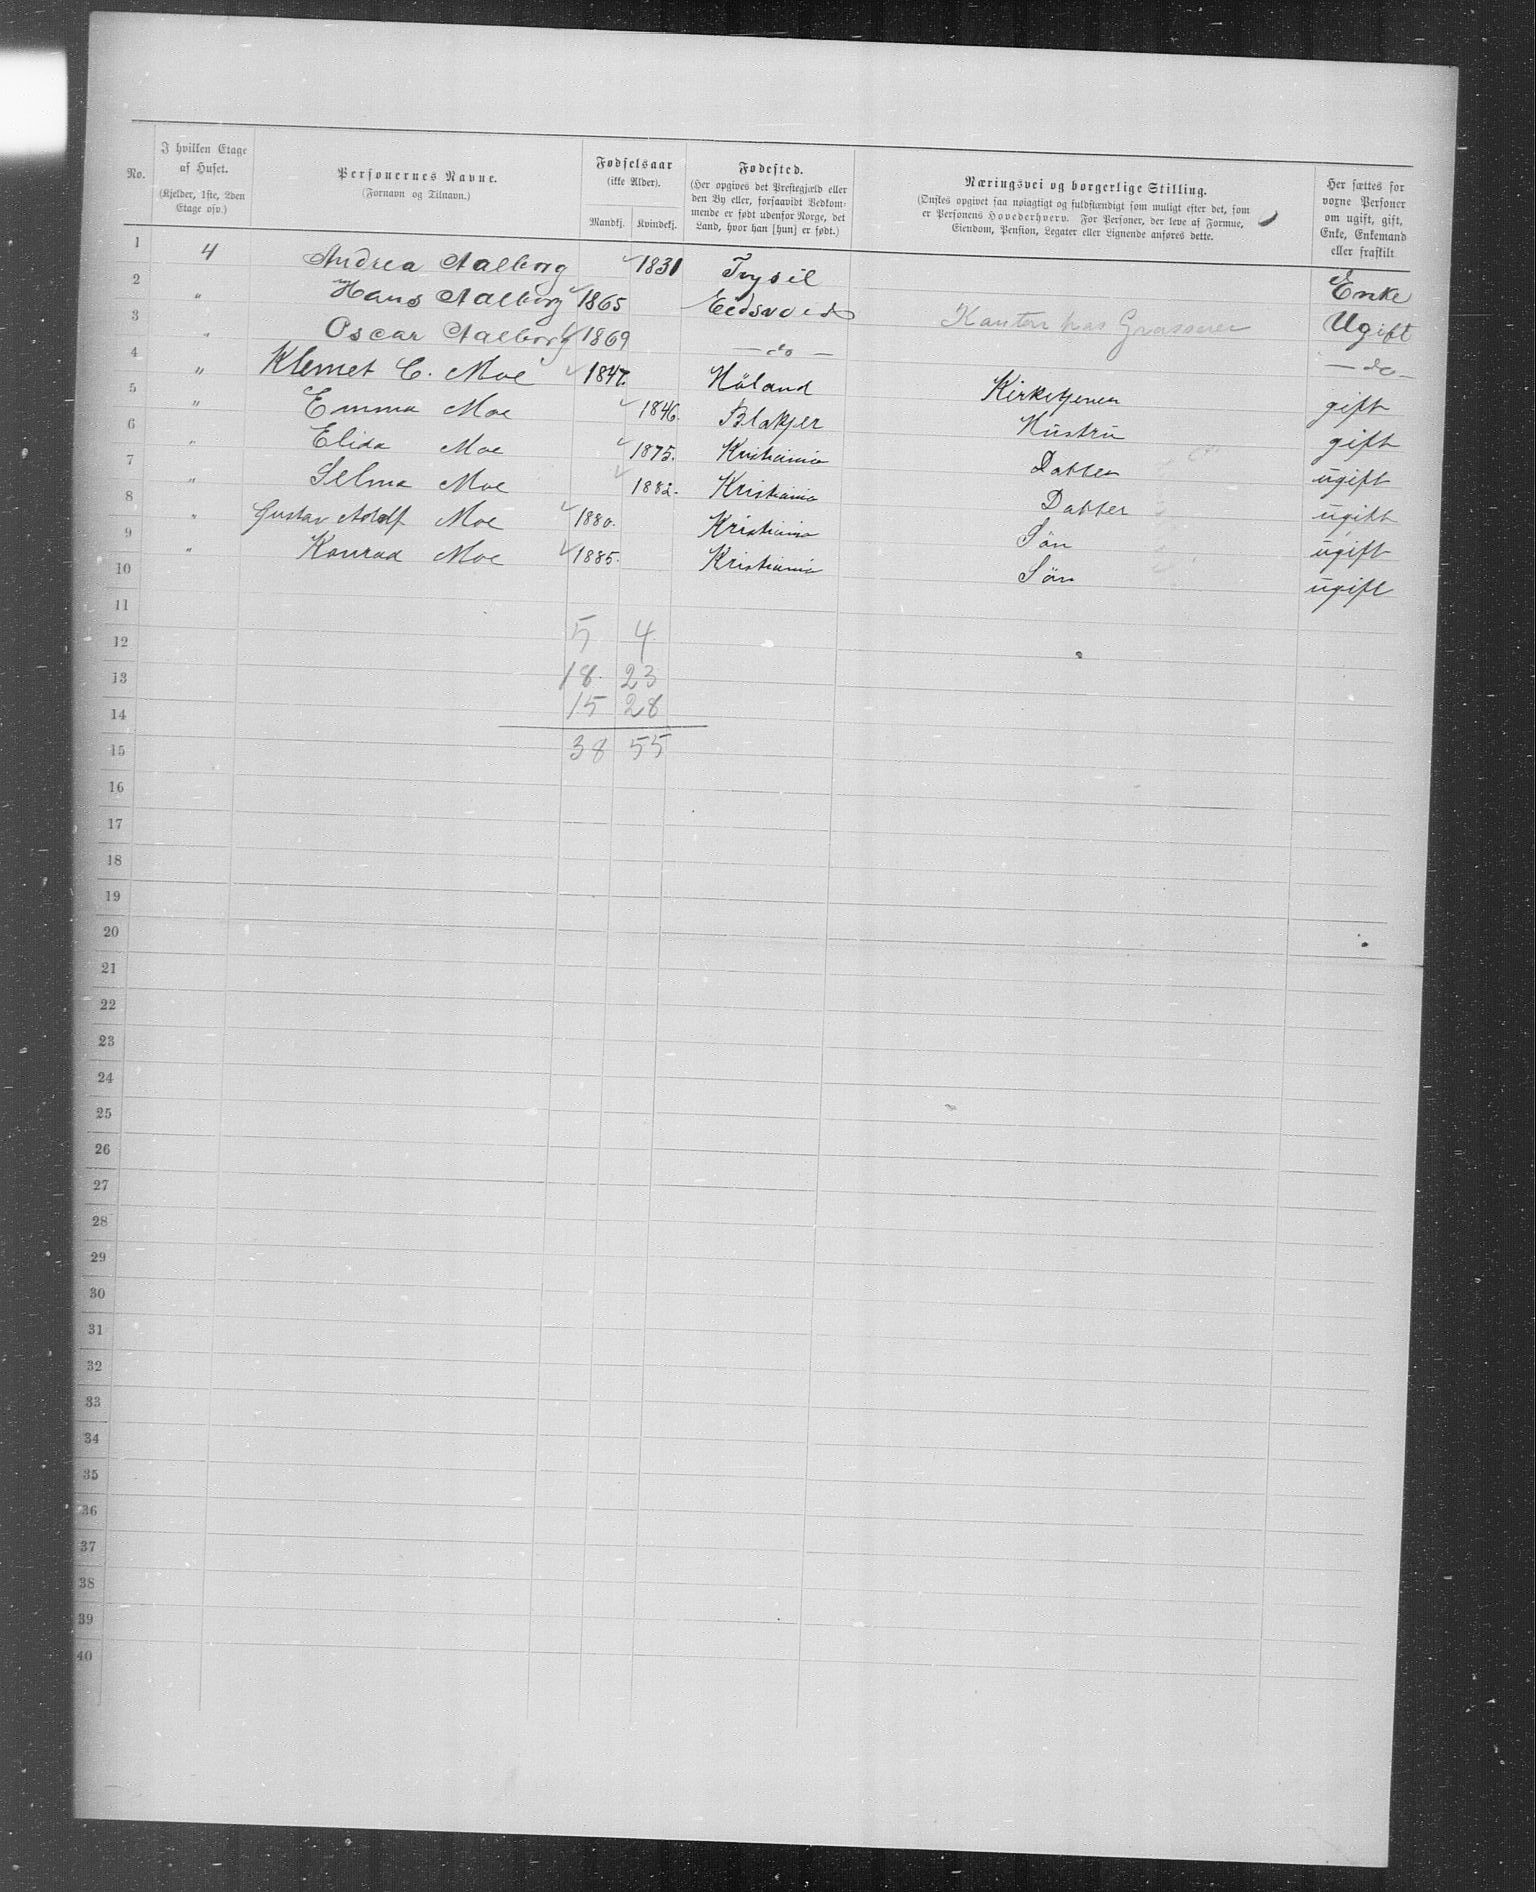 No.
I hvilken Etage af Huset.
(Kjelder, 1ste, 2den Etage osv.)
Personernes Navne.
(Fornavn og Tilnavn.)
Fødselsaar
(ikke Alder).
Mandkj. Kvindekj.
Fødested.
(Her opgives det Prestegjæld eller
den By eller, forsaavidt Vedkom-
mende er født udenfor Norge, det
Land, hvor han [hun] er født.)
Næringsvei og borgerlige Stilling.
(Ønskes opgivet saa nøiagtigt og fuldstændigt som muligt efter det, som
er Personens Hovederhverv. For Personer, der leve af Formue,
Eiendom, Pension, Legater eller Lignende anføres dette.
Her sættes for
voxne Personer
om ugift, gift,
Enke, Enkemand
eller fraskilt
1 4 Andrea Aalborg 1831 Trysil Enke
2 " Hans Aalborg 1865 Eidsvold Kontor hos Ugift
3 " Oscar Aalborg 1869 — do — — do —
4 " Klemet C. Moe 1847. Höland Kirketjener gift
5 " Emma Moe 1846. Blakjer Hustru gift
6 " Elida Moe 1875. Kristiania Datter ugift
7 " Selma Moe 1882. Kristiania Datter ugift
8 " Gustav Adolf Moe 1880. Kristiania Sön ugift
9 " Konrad Moe 1885. Kristiania Sön ugift
10
11
12 5 4
13 18. 23
14 15 28
15 38 55
16
17
18
19
20
21
22
23
24
25
26
27
28
29
30
31
32
33
34
35
36
37
38
39
40